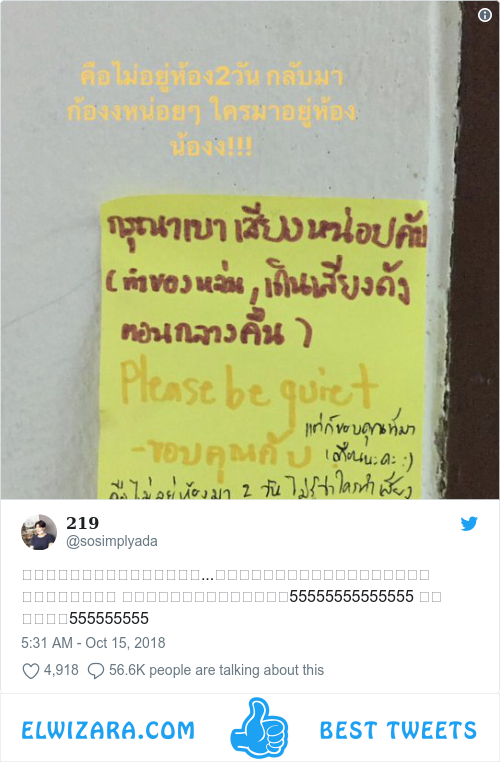 คือไม่อยู่ห้อง2วัน กลับมา
ก้องงหน่อยๆ ใครมาอยู่ห้อง
น้องง!!!
กรุณาเบาเสียงหน่อยคับ
(ทำของหล่น,เดินเสียงดัง
ตอนกลางคืน)
Please be quiet
-ขอบคุณคับ
แต่ก็ขอบคุณที่มา
เตือนนะคะ :)
คือไม่อยู่ห้องมา 2 วัน ไม่รู้ว่าใครทำเสียง
219
@sosimplyada
...
55555555555555
555555555
5:31 AM - Oct 15, 2018
4,918 56.6K people are talking about this
ELWIZARA.COM BEST TWEETS